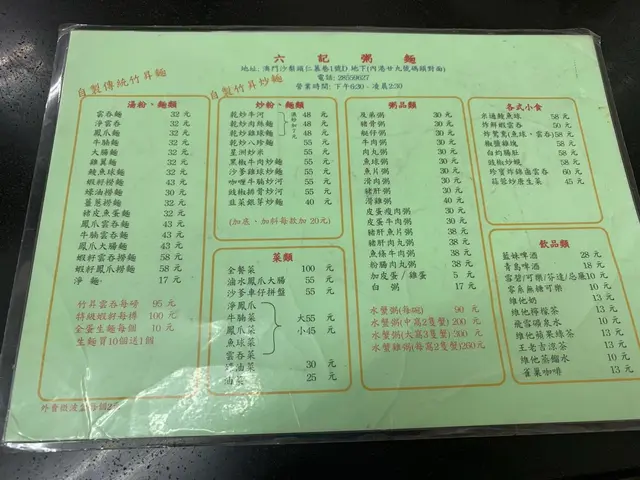 六記粥麵
地址: 澳門沙梨頭仁慕巷1號D地下(內港廿九號碼頭對面)
電話: 28559627
營業時間: 下午6:30 - 凌晨2:30
自製傳統竹昇麵
自製竹昇炒麵
湯粉、麵類
雲吞麵 32 元
淨雲吞 32 元
鳳爪麵 32 元
牛腩麵 32 元
大腸麵 32 元
雞翼麵 32 元
鯪魚球麵 32 元
蝦籽撈麵 43 元
蠔油撈麵 30 元
薑蔥撈麵 30 元
豬皮魚蛋麵 32 元
鳳爪雲吞麵 43 元
牛腩雲吞麵 43 元
鳳爪撈麵 43 元
蝦籽雲吞撈麵 58 元
蝦籽鳳爪撈麵 58 元
淨麵 17 元
竹昇雲吞每磅 95 元
特級蝦籽每樽 100 元
全蛋生麵每個 10 元
生麵買10個送1個
外賣微波盒每個2元
炒粉、麵類
乾炒牛河 48 元
乾炒肉絲麵 48 元
乾炒雞球麵 48 元
乾炒八珍麵 55 元
星洲炒米 55 元
黑椒牛肉炒麵 55 元
沙爹雞球炒麵 55 元
咖喱牛腩炒河 55 元
豉椒排骨炒河 55 元
韭菜銀芽炒麵 40 元
(加底、加料每款加 20元)
菜類
全餐菜 100 元
滷水鳳爪大腸 55 元
沙爹車仔拼盤 55 元
淨鳳爪
牛腩菜 大55 元
鳳爪菜 小45 元
魚球菜
雲吞菜
30 元
油菜 25 元
粥品類
及第粥 30 元
豬骨粥 30 元
艇仔粥 30 元
牛肉粥 30 元
肉丸粥 30 元
魚球粥 30 元
魚片粥 30 元
滑肉粥 30 元
豬肝粥 30 元
滑雞粥 40 元
皮蛋瘦肉粥 30 元
皮蛋牛肉粥 30 元
豬肝魚片粥 38 元
豬肝肉丸粥 38 元
魚球牛肉粥 38 元
粉腸肉丸粥 38 元
加皮蛋 / 雞蛋 5 元
白粥 17 元
水蟹粥(每碗) 90 元
水蟹粥(中窩2隻蟹) 200 元
水蟹粥(大窩3隻蟹) 300 元
水蟹雞粥(每窩2隻蟹)260元
各式小食
水邊鯪魚球 58 元
炸鮮蝦雲吞 50 元
炸鴛鴦(魚球、雲吞)58元
椒鹽雞塊 58 元
白灼豬肚 58 元
豉椒炒蜆 58 元
珍寶炸鎊滷雲吞 60 元
蒜蓉炒唐生菜 45 元
飲品類
藍妹啤酒 28 元
青島啤酒 18 元
雪碧/可樂/芬達/忌廉10元
零系無糖可樂 10 元
維他奶 10 元
維他檸檬茶 13 元
飛雪礦泉水 10 元
維他蘋果綠茶 13 元
王老吉涼茶 13 元
維他蒸餾水 10 元
雀巢咖啡 13 元